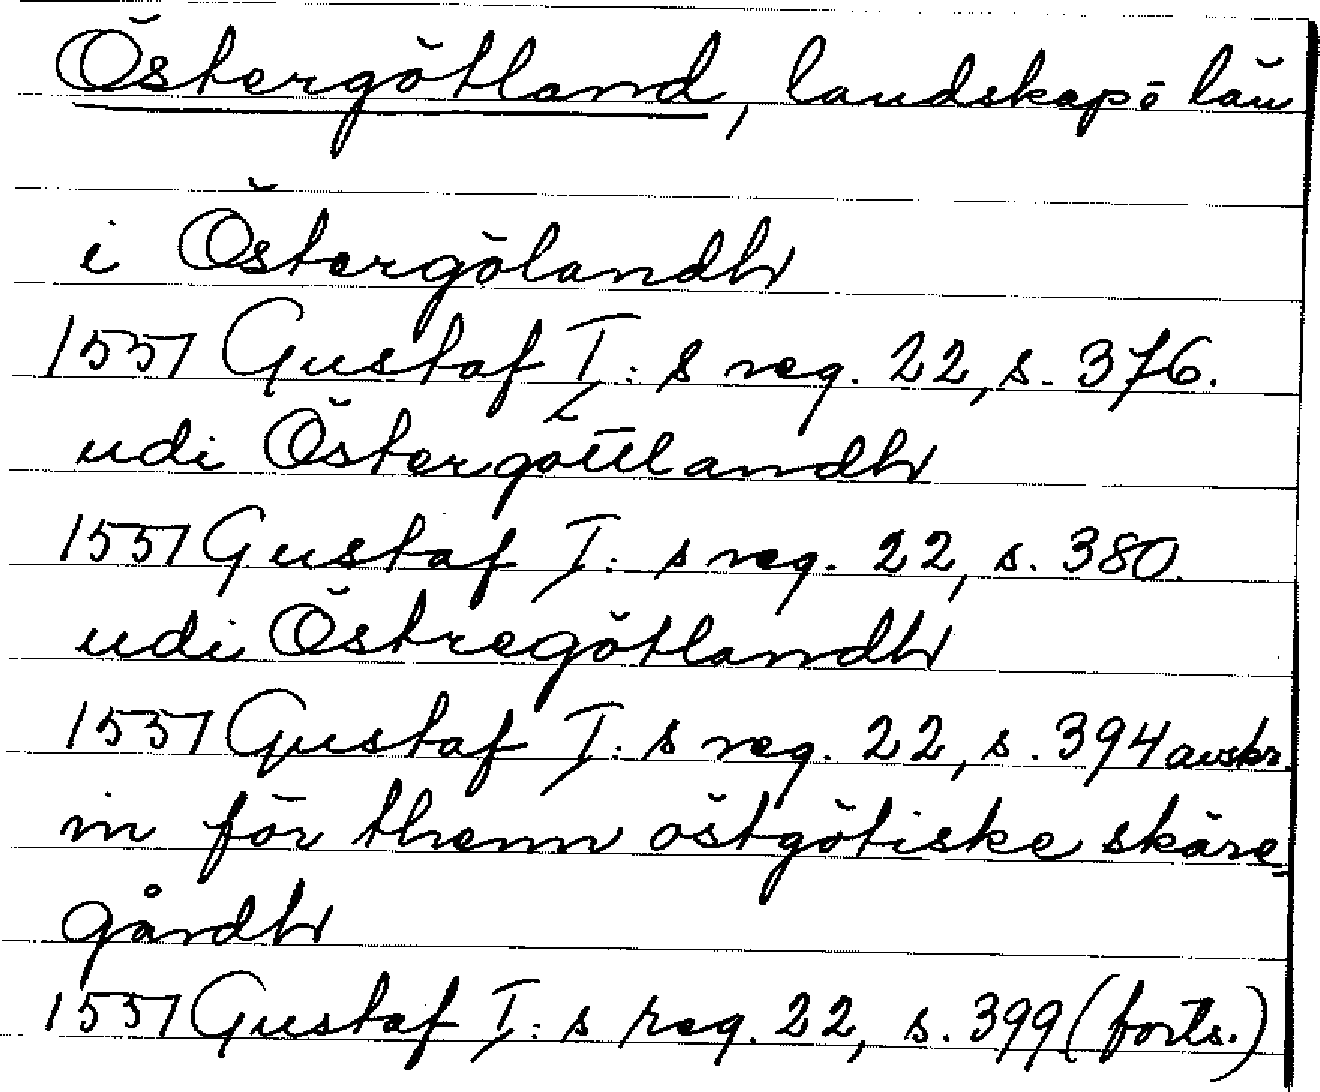 Östergötland, landskap o län
i Östergölandh
1551 Gustaf I: s reg. 22, s. 376.
udi Östergöttlandh
1551 Gustaf I: s reg. 22, s. 380.
udi Östregötlandh
1551 Gustaf I: s reg. 22, s. 394 avskr.
in för thenn östgötiske skäre-
gårdh
1551 Gustaf I: s reg. 22, s. 399 (forts.)